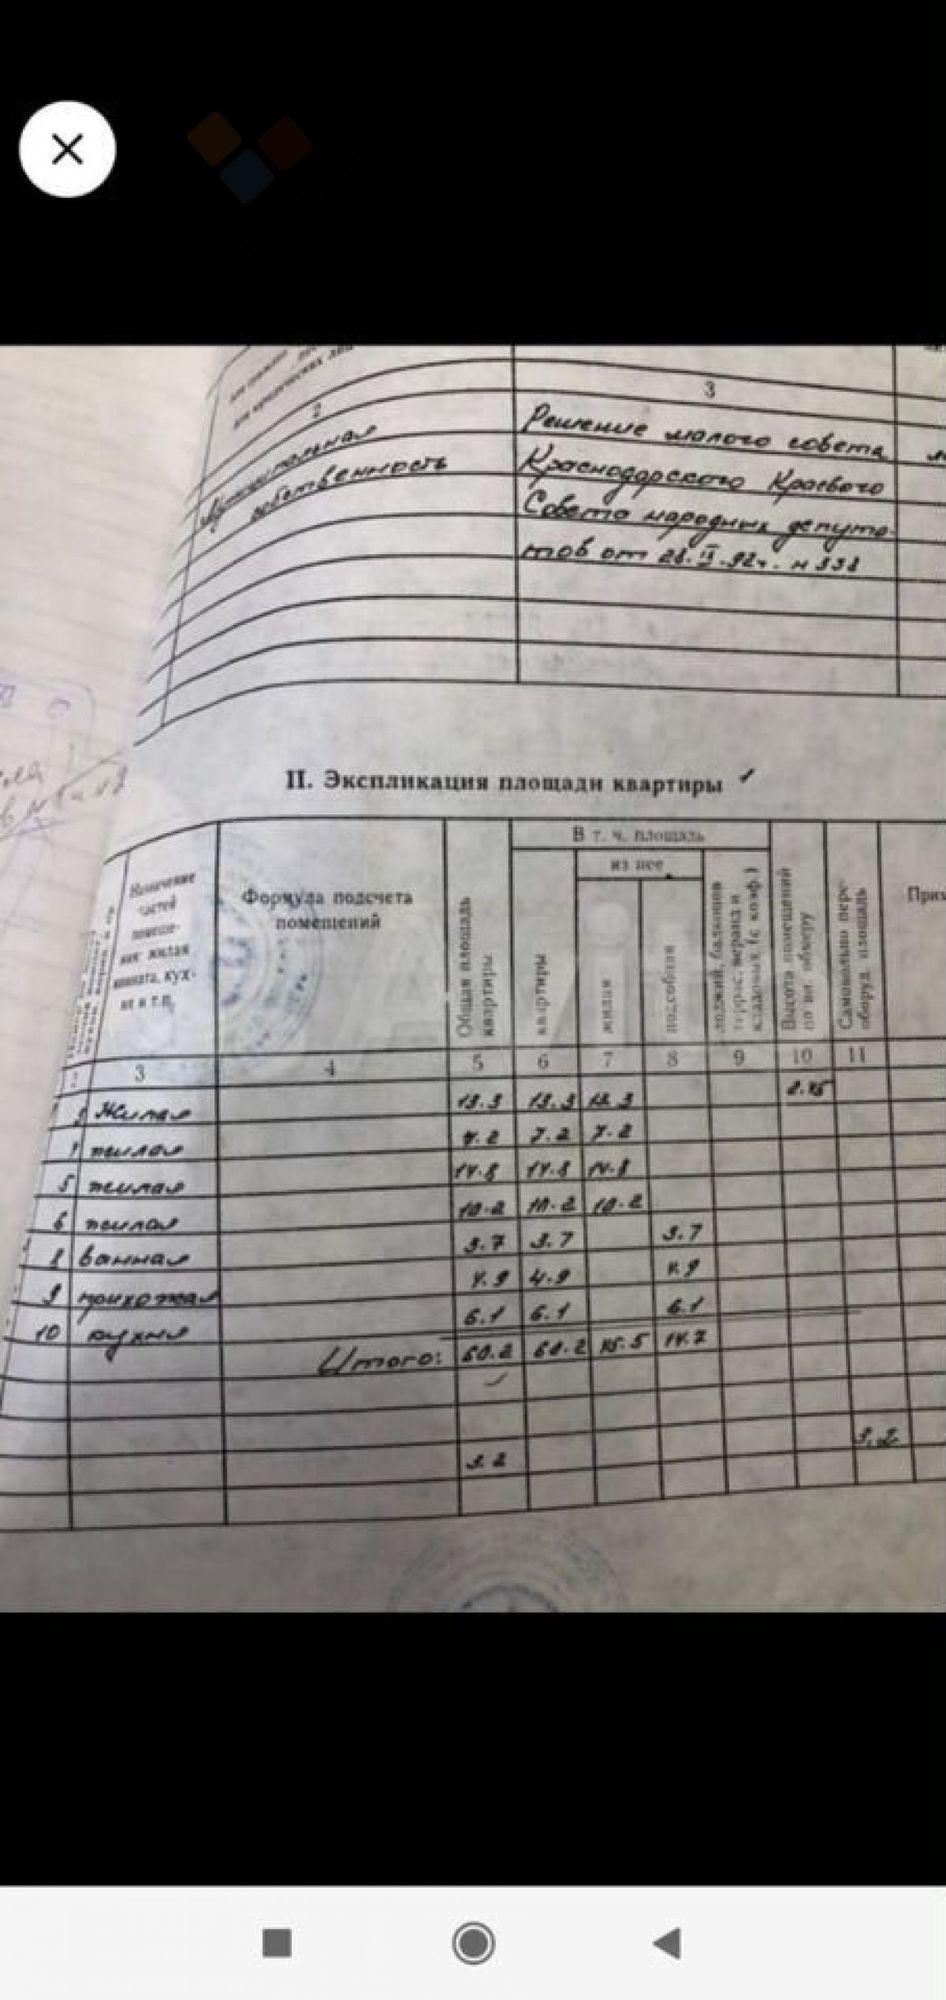 2
3
собственность
Решение малого совета
Краснодарского Краевого
Совета народных депута-
тов от
II. Экспликация площади квартиры
Назначение частей помеще-
ния: жилая
комната, кух-
ня и т.п.
Формула подсчета
помещений
Общая площадь
квартиры
В т. ч. площадь
из нее
квартиры
жилая
подсобная
лоджий, балконов
террас, веранд и
кладовых (с коэф.)
Высота помещений
по вн. обмеру
Самовольно пере-
оборуд. площадь
2 3 4 5 6 7 8 9 10 11
Жилая 13.3 13.3 13.3
жилая 7.2 7.2 7.2
5 жилая 14.8 14.8 14.8
6 жилая 10.2 10.2 10.2
8 ванная 3.7 3.7 3.7
9 прихожая 4.9 4.9 4.9
10 кухня 6.1 6.1 6.1
Итого: 60.2 60.2 45.5 14.7
3.2
3.2